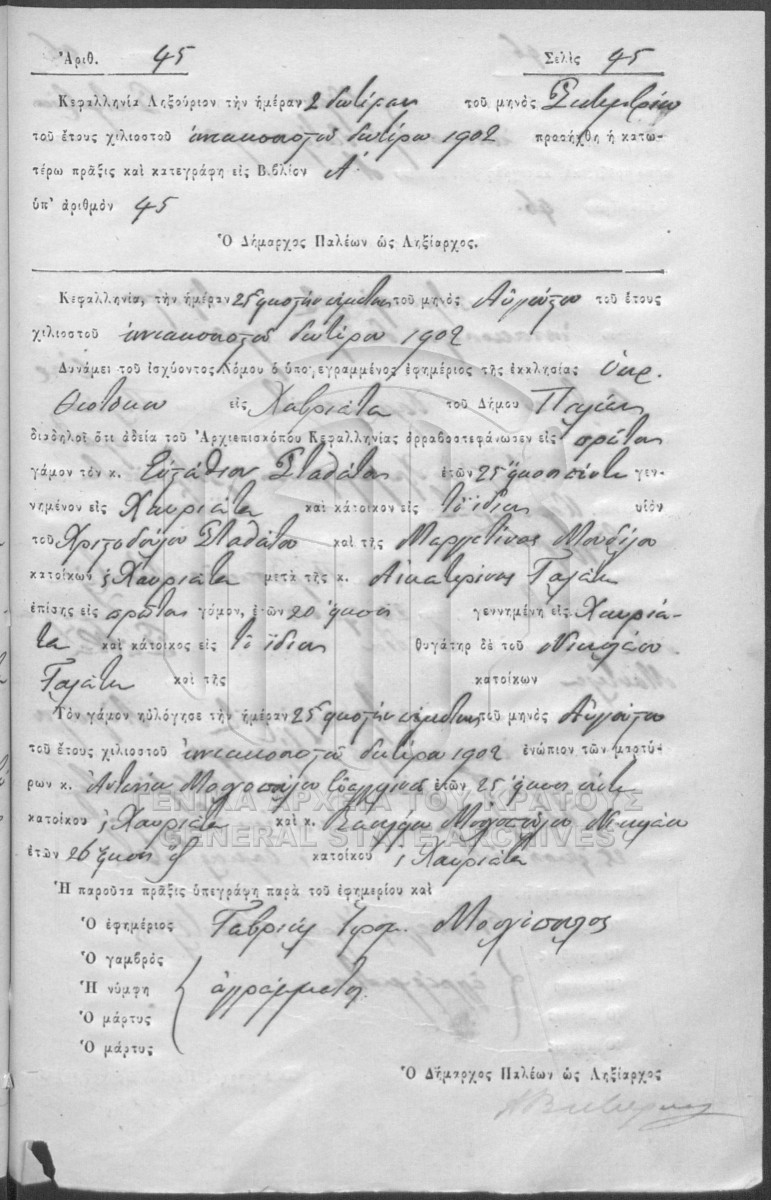 Ἀριθ. 45 Σελὶς 45
Κεφαλληνία Ληξούριον τὴν ἡμέραν 2 δευτέραν τοῦ μηνὸς Σεπτεμβρίου
τοῦ ἔτους χιλιοστοῦ ἐννιακοσιοστοῦ δευτέρου 1902 προσήχθη ἡ κατω-
τέρω πρᾶξις καὶ κατεγράφη εἰς Βιβλίον Α΄
ὑπ' ἀριθμὸν 45
Ὁ Δήμαρχος Παλέων ὡς Ληξίαρχος.
Κεφαλληνία, τὴν ἡμέραν 25 εἰκοστὴν πέμπτην τοῦ μηνὸς Αὐγούστου τοῦ ἔτους
χιλιοστοῦ ἐννιακοσιοστοῦ δευτέρου 1902
Δυνάμει τοῦ ἰσχύοντος Νόμου ὁ ὑπογεγραμμένος ἐφημέριος τῆς ἐκκλησίας Ὑπερ.
Θεοτόκου εἰς Χαβριάτα τοῦ Δήμου Παλέων
διαδηλοῖ ὅτι ἀδείᾳ τοῦ Ἀρχιεπισκόπου Κεφαλληνίας ἀρραβοστεφάνωσεν εἰς πρῶτον
γάμον τὸν κ. Εὐστάθιον Σταθάτον ἐτῶν 25 εἴκοσι πέντε γεν-
νημένον εἰς Χαυριάτα καὶ κάτοικον εἰς τὸ ἴδιον υἱὸν
τοῦ Χριστοδούλου Σταθάτου καὶ τῆς
κατοίκων Χαυριάτα μετὰ τῆς κ. Αἰκατερίνας Γαλάτη
ἐπίσης εἰς πρῶτον γάμον, ἐτῶν 20 εἴκοσι γεννημένη εἰς Χαυριά-
τα καὶ κάτοικος εἰς τὸ ἴδιον θυγάτηρ δὲ τοῦ Νικολάου
Γαλάτη καὶ τῆς κατοίκων
Τὸν γάμον ηὐλόγησε τὴν ἡμέραν 25 εἰκοστὴν πέμπτην τοῦ μηνὸς Αὐγούστου
τοῦ ἔτους χιλιοστοῦ ἐννιακοσιοστοῦ δευτέρου 1902 ἐνώπιον τῶν μαρτύ-
ρων κ. Ἀντωνίου Μοσχοπούλου Εὐαγγελινοῦ ἐτῶν 25 εἴκοσι πέντε
κατοίκου Χαυριάτα καὶ κ. Βασιλείου Μοσχοπούλου Νικολάου
ἐτῶν 26 εἴκοσι ἓξ κατοίκου Χαυριάτα
ΓΕΝΙΚΑ ΑΡΧΕΙΑ ΤΟΥ ΚΡΑΤΟΥΣ
GENERAL STATE ARCHIVES
Ἡ παροῦσα πρᾶξις ὑπεγράφη παρὰ τοῦ ἐφημερίου καὶ
Ὁ ἐφημέριος Γαβριὴλ Ἱερομ. Μοσχόπουλος
Ὁ γαμβρὸς
Ἡ νύμφη ἀγράμματοι
Ὁ μάρτυς
Ὁ μάρτυς
Ὁ Δήμαρχος Παλέων ὡς Ληξίαρχος